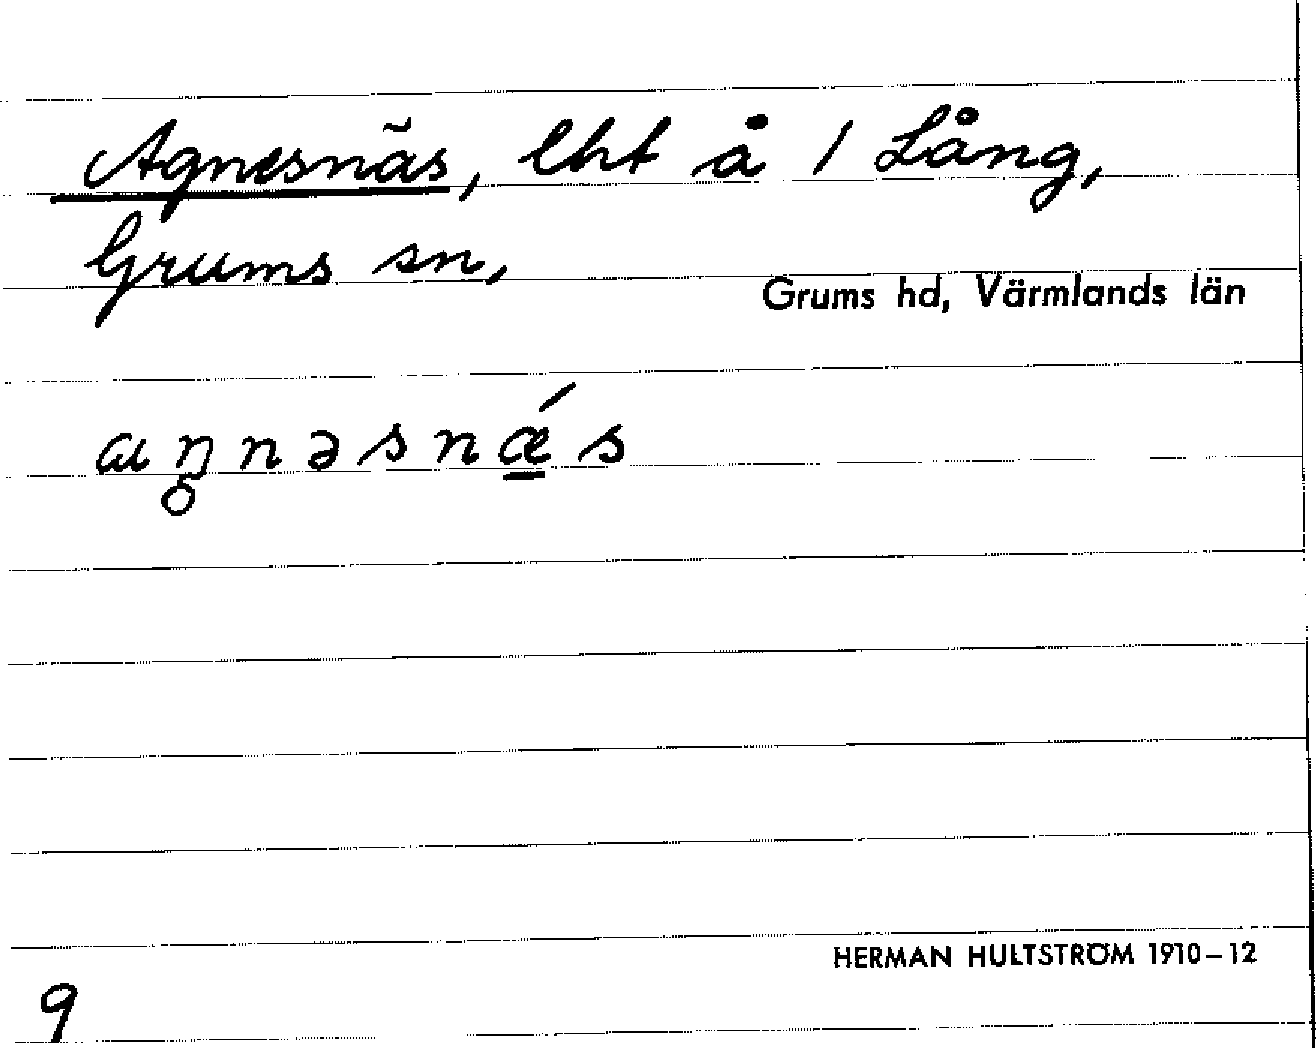 Agnesnäs, lht å 1 Lång,
Grums sn,
Grums hd, Värmlands län
aŋ̥nəsnǽ̲s
HERMAN HULTSTRÖM 1910–12
9